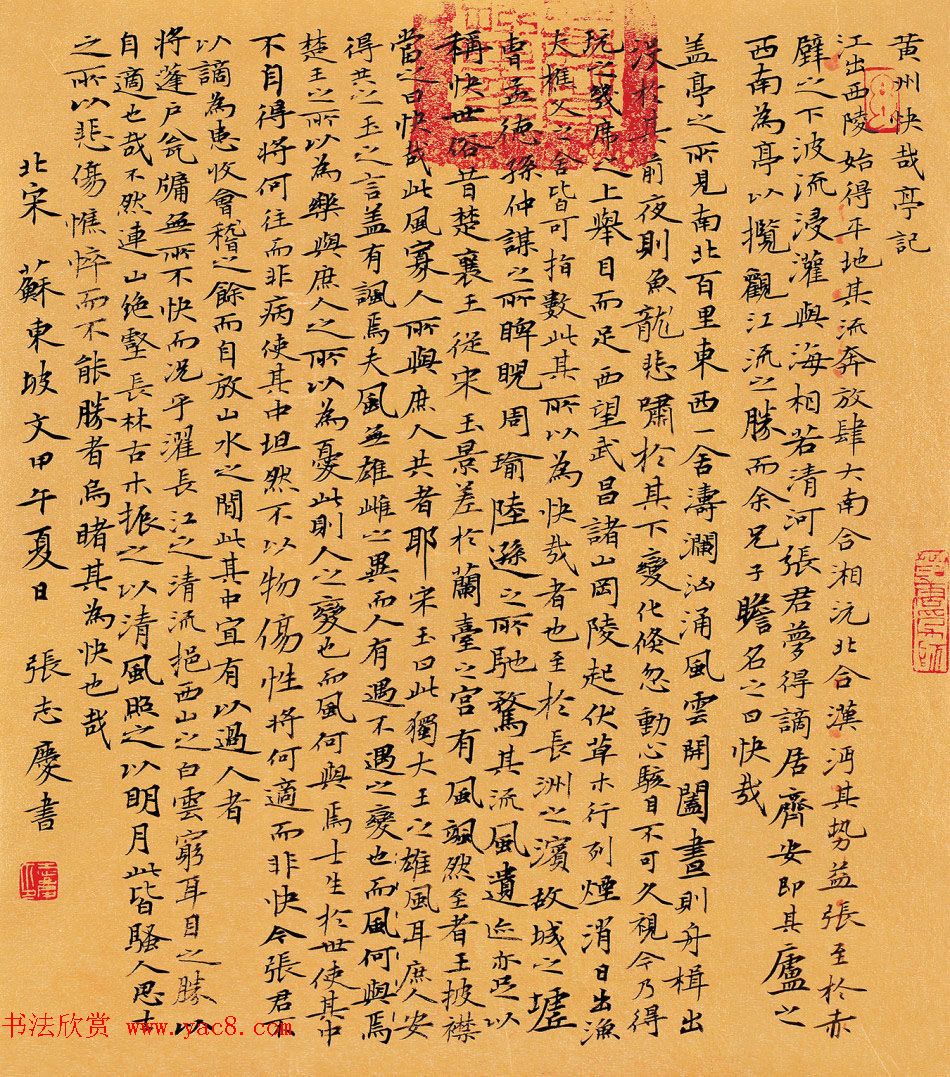 黄州快哉亭記
江出西陵始得平地其流奔放肆大南合湘沅北合漢沔其势益張至於赤
壁之下波流浸灌與海相若清河張君夢得謫居齊安即其廬之
西南為亭以攬觀江流之勝而余兄子瞻名之曰快哉
盖亭之所見南北百里東西一舍濤瀾汹涌風雲開闔晝則舟楫出
没於其前夜則魚龍悲嘯於其下變化倏忽動心駭目不可久視今乃得
玩之幾席之上舉目而足西望武昌諸山岡陵起伏草木行列煙消日出漁
夫樵父之舍皆可指數此其所以為快哉者也至於長洲之濱故城之墟
曹孟德孫仲謀之所睥睨周瑜陸遜之所馳騖其流風遺迹亦足以
稱快世俗昔楚襄王從宋玉景差於蘭臺之宮有風颯然至者王披襟
當之曰快哉此風寡人所與庶人共者耶宋玉曰此獨大王之雄風耳庶人安
得共之玉之言盖有諷焉夫風無雄雌之異而人有遇不遇之變也而風何與焉
楚王之所以為樂與庶人之所以為憂此則人之變也而風何與焉士生於世使其中
不自得將何往而非病使其中坦然不以物傷性將何適而非快今張君不
以謫為患收會稽之餘而自放山水之間此其中宜有以過人者
將蓬戶瓮牖無所不快而况乎濯長江之清流挹西山之白雲窮耳目之勝以
自適也哉不然連山绝壑長林古木振之以清風照之以明月此皆騷人思士
之所以悲傷憔悴而不能勝者烏睹其為快也哉
北宋 蘇東坡文甲午夏日 張志慶書
书法欣赏 www.yac8.com